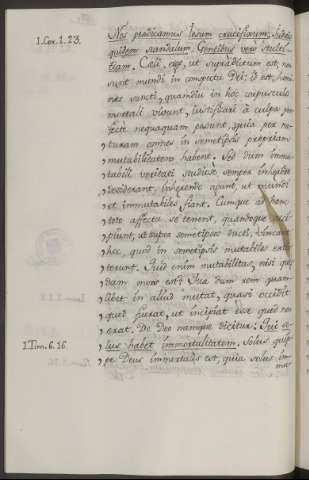 1.Cor. 1. 23.
Nos praedicamus Iesum crucifixum, Iudaeis
quidem scandalum, Gentibus vero stulti-
tiam. Coeli, ergo, ut supradictum est, non
sunt mundi in conspectu Dei: id est, homi
nes sancti, quandiu in hoc corpusculo
mortali vivunt, iustificari à culpa per
fectè nequaquam possunt, quia per na
turam omnes in semetipsis propriam
mutabilitatem habent. Sed dum immu
tabili veritati studiosè semper inhaerere
desiderant, inhaerendo agunt, ut quandoque
et immutabiles fiant. Cumque ad hanc
toto affectu se tenent, quandoque acci
piunt, ut super semetipsos ducti, vincant
hoc, quod in semetipsis mutabiles exti
terunt. Quid enim mutabilitas, nisi quae
dam mors est? Quae dum rem quam
libet in aliud mutat, quasi occidit
quod fuerat, ut incipiat esse quod non
erat. De Deo namque dicitur: Qui so
1.Tim. 6. 16.
lus habet immortalitatem. Solus quip
pe Deus immortalis est, quia solus im
mu